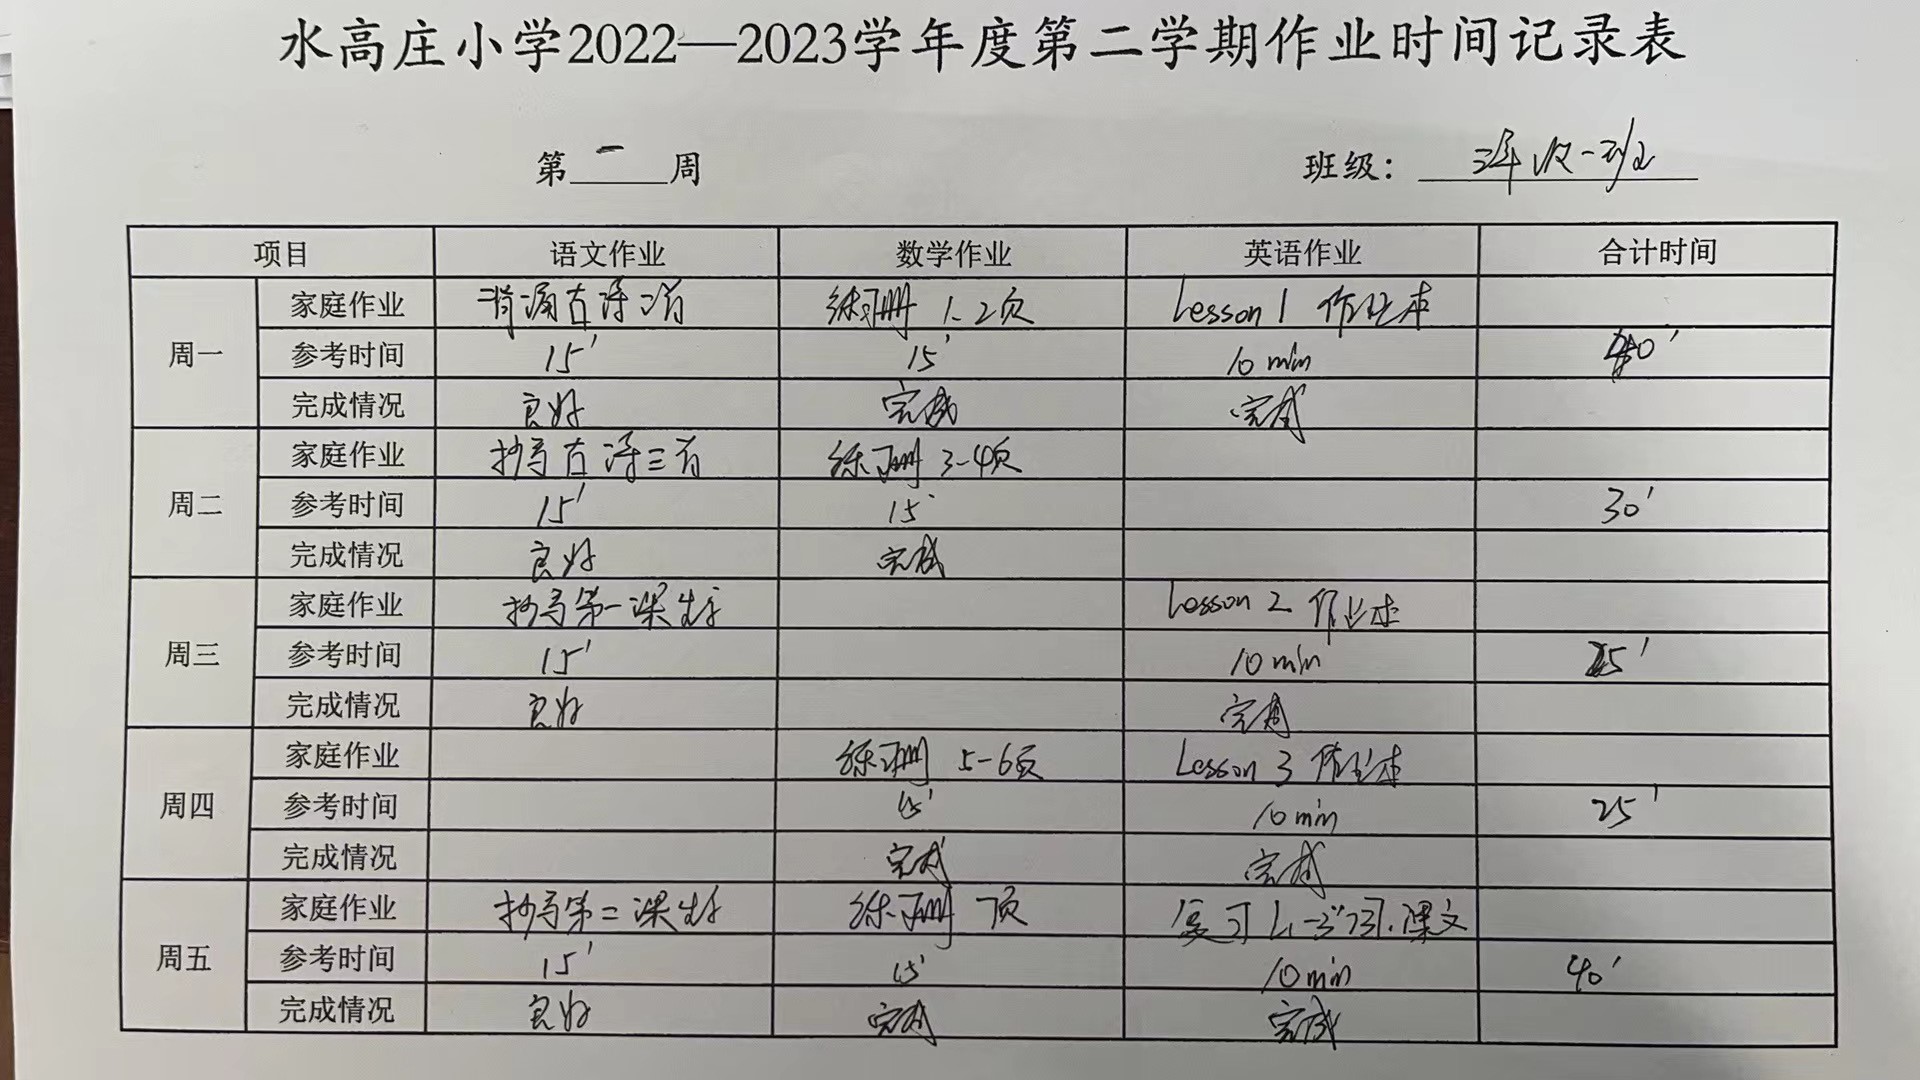 水高庄小学2022—2023学年度第二学期作业时间记录表
第一周 班级：三年级一班
项目 语文作业 数学作业 英语作业 合计时间
周一
家庭作业 背诵古诗三首 练习册 1-2页 Lesson 1 作业本
参考时间 15' 15' 10 min 40'
完成情况 良好 完成 完成
周二
家庭作业 抄写古诗三首 练习册 3-4页
参考时间 15' 15' 30'
完成情况 良好 完成
周三
家庭作业 抄写第一课生字 Lesson 2 作业本
参考时间 15' 10 min 25'
完成情况 良好 完成
周四
家庭作业 练习册 5-6页 Lesson 3 作业本
参考时间 15' 10 min 25'
完成情况 完成 完成
周五
家庭作业 抄写第二课生字 练习册 7页 复习 L1-3词.课文
参考时间 15' 15' 10 min 40'
完成情况 良好 完成 完成